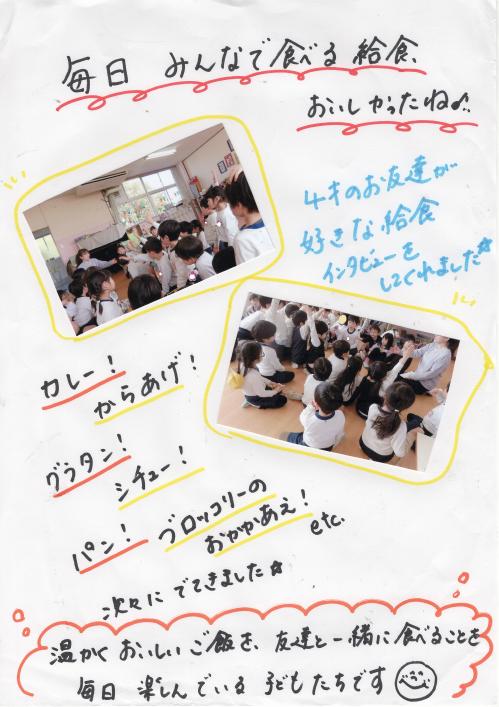 毎日 みんなで食べる給食、
おいしかったね♪
4才のお友達が
好きな給食
インタビューを
してくれました☆
カレー！
からあげ！
グラタン！
シチュー！
パン！
ブロッコリーの
おかかあえ！
etc.
次々に でてきました☆
温かく おいしい ご飯を、友達と一緒に食べることを
毎日 楽しんでいる 子どもたちです